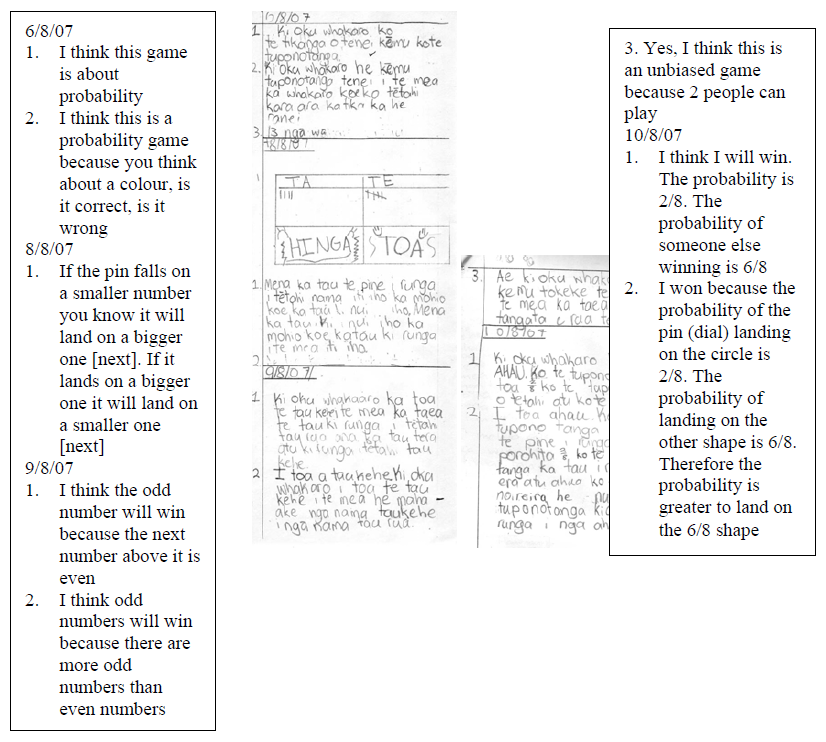 6/8/07
1. I think this game
is about
probability
2. I think this is a
probability game
because you think
about a colour, is
it correct, is it
wrong
8/8/07
1. If the pin falls on
a smaller number
you know it will
land on a bigger
one [next]. If it
lands on a bigger
one it will land on
a smaller one
[next]
9/8/07
1. I think the odd
number will win
because the next
number above it is
even
2. I think odd
numbers will win
because there are
more odd
numbers than
even numbers
/8/07
1. Ki oku whakaro ko
te tikanga o tenei kēmu kote
tuponotanga.
2. Ki oku whakaro he kēmu
tuponotanga tenei i te mea
ka whakaro koe ko tētohi
kara ara ka tika ka he
ranei
3. 13 nga wa
/8/07
TA TE
HINGA STOAS
1. Mena ka tau te pine i runga
i tētohi nama iti iho ka mohio
koe ka tau nui iho. Mena
ka tau ki nui iho ka
mohio koe katau ki runga
i te mea iti iho.
2.
9/8/07
1 Ki oku whakaaro ka toa
te tau kehe te mea ka taea
te tau ki runga i tetahi
tau rua ana ka tau tera
atu ki runga tetahi tau
kehe.
2 I toa a taukehe Ki oku
whakaro i toa te tau
kehe i te mea he maha
ake ngo nama taukehe
i ngā nama tau rua.
3. Ae ki oku whak
kemu tokeke te
te mea ka taea
tangata e rua t
10/8/07
1 Ki oku whakaro
AHAU. Ko te tupon
toa ko te tup
o tetahi atu kote
2 I toa ahau
tupono tanga
te pine i runga
porohita ko te
tanga ka tau i r
era atu ahua ko
noireira he nu
tuponotonga kia
runga i nga ah
3. Yes, I think this is
an unbiased game
because 2 people can
play
10/8/07
1. I think I will win.
The probability is
2/8. The
probability of
someone else
winning is 6/8
2. I won because the
probability of the
pin (dial) landing
on the circle is
2/8. The
probability of
landing on the
other shape is 6/8.
Therefore the
probability is
greater to land on
the 6/8 shape